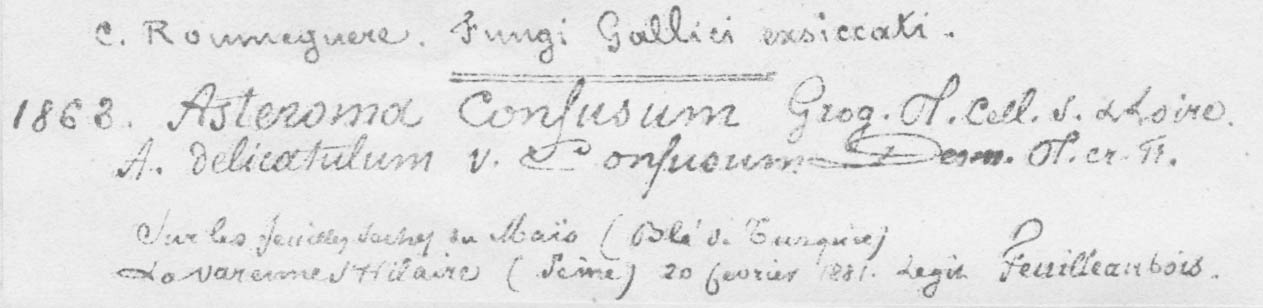 C. Roumeguere. Fungi Gallici exsiccati.
1863. Asteroma Confusum Grog. Pl. Cell. S. & Loire.
A. delicatulum v. Confusum Desm. Pl. cr. Fr.
Sur les feuilles seches du Maïs (Blé de Turquie)
La varenne St Hilaire (Seine) 20 fevrier 1881. Legit Feuilleaubois.